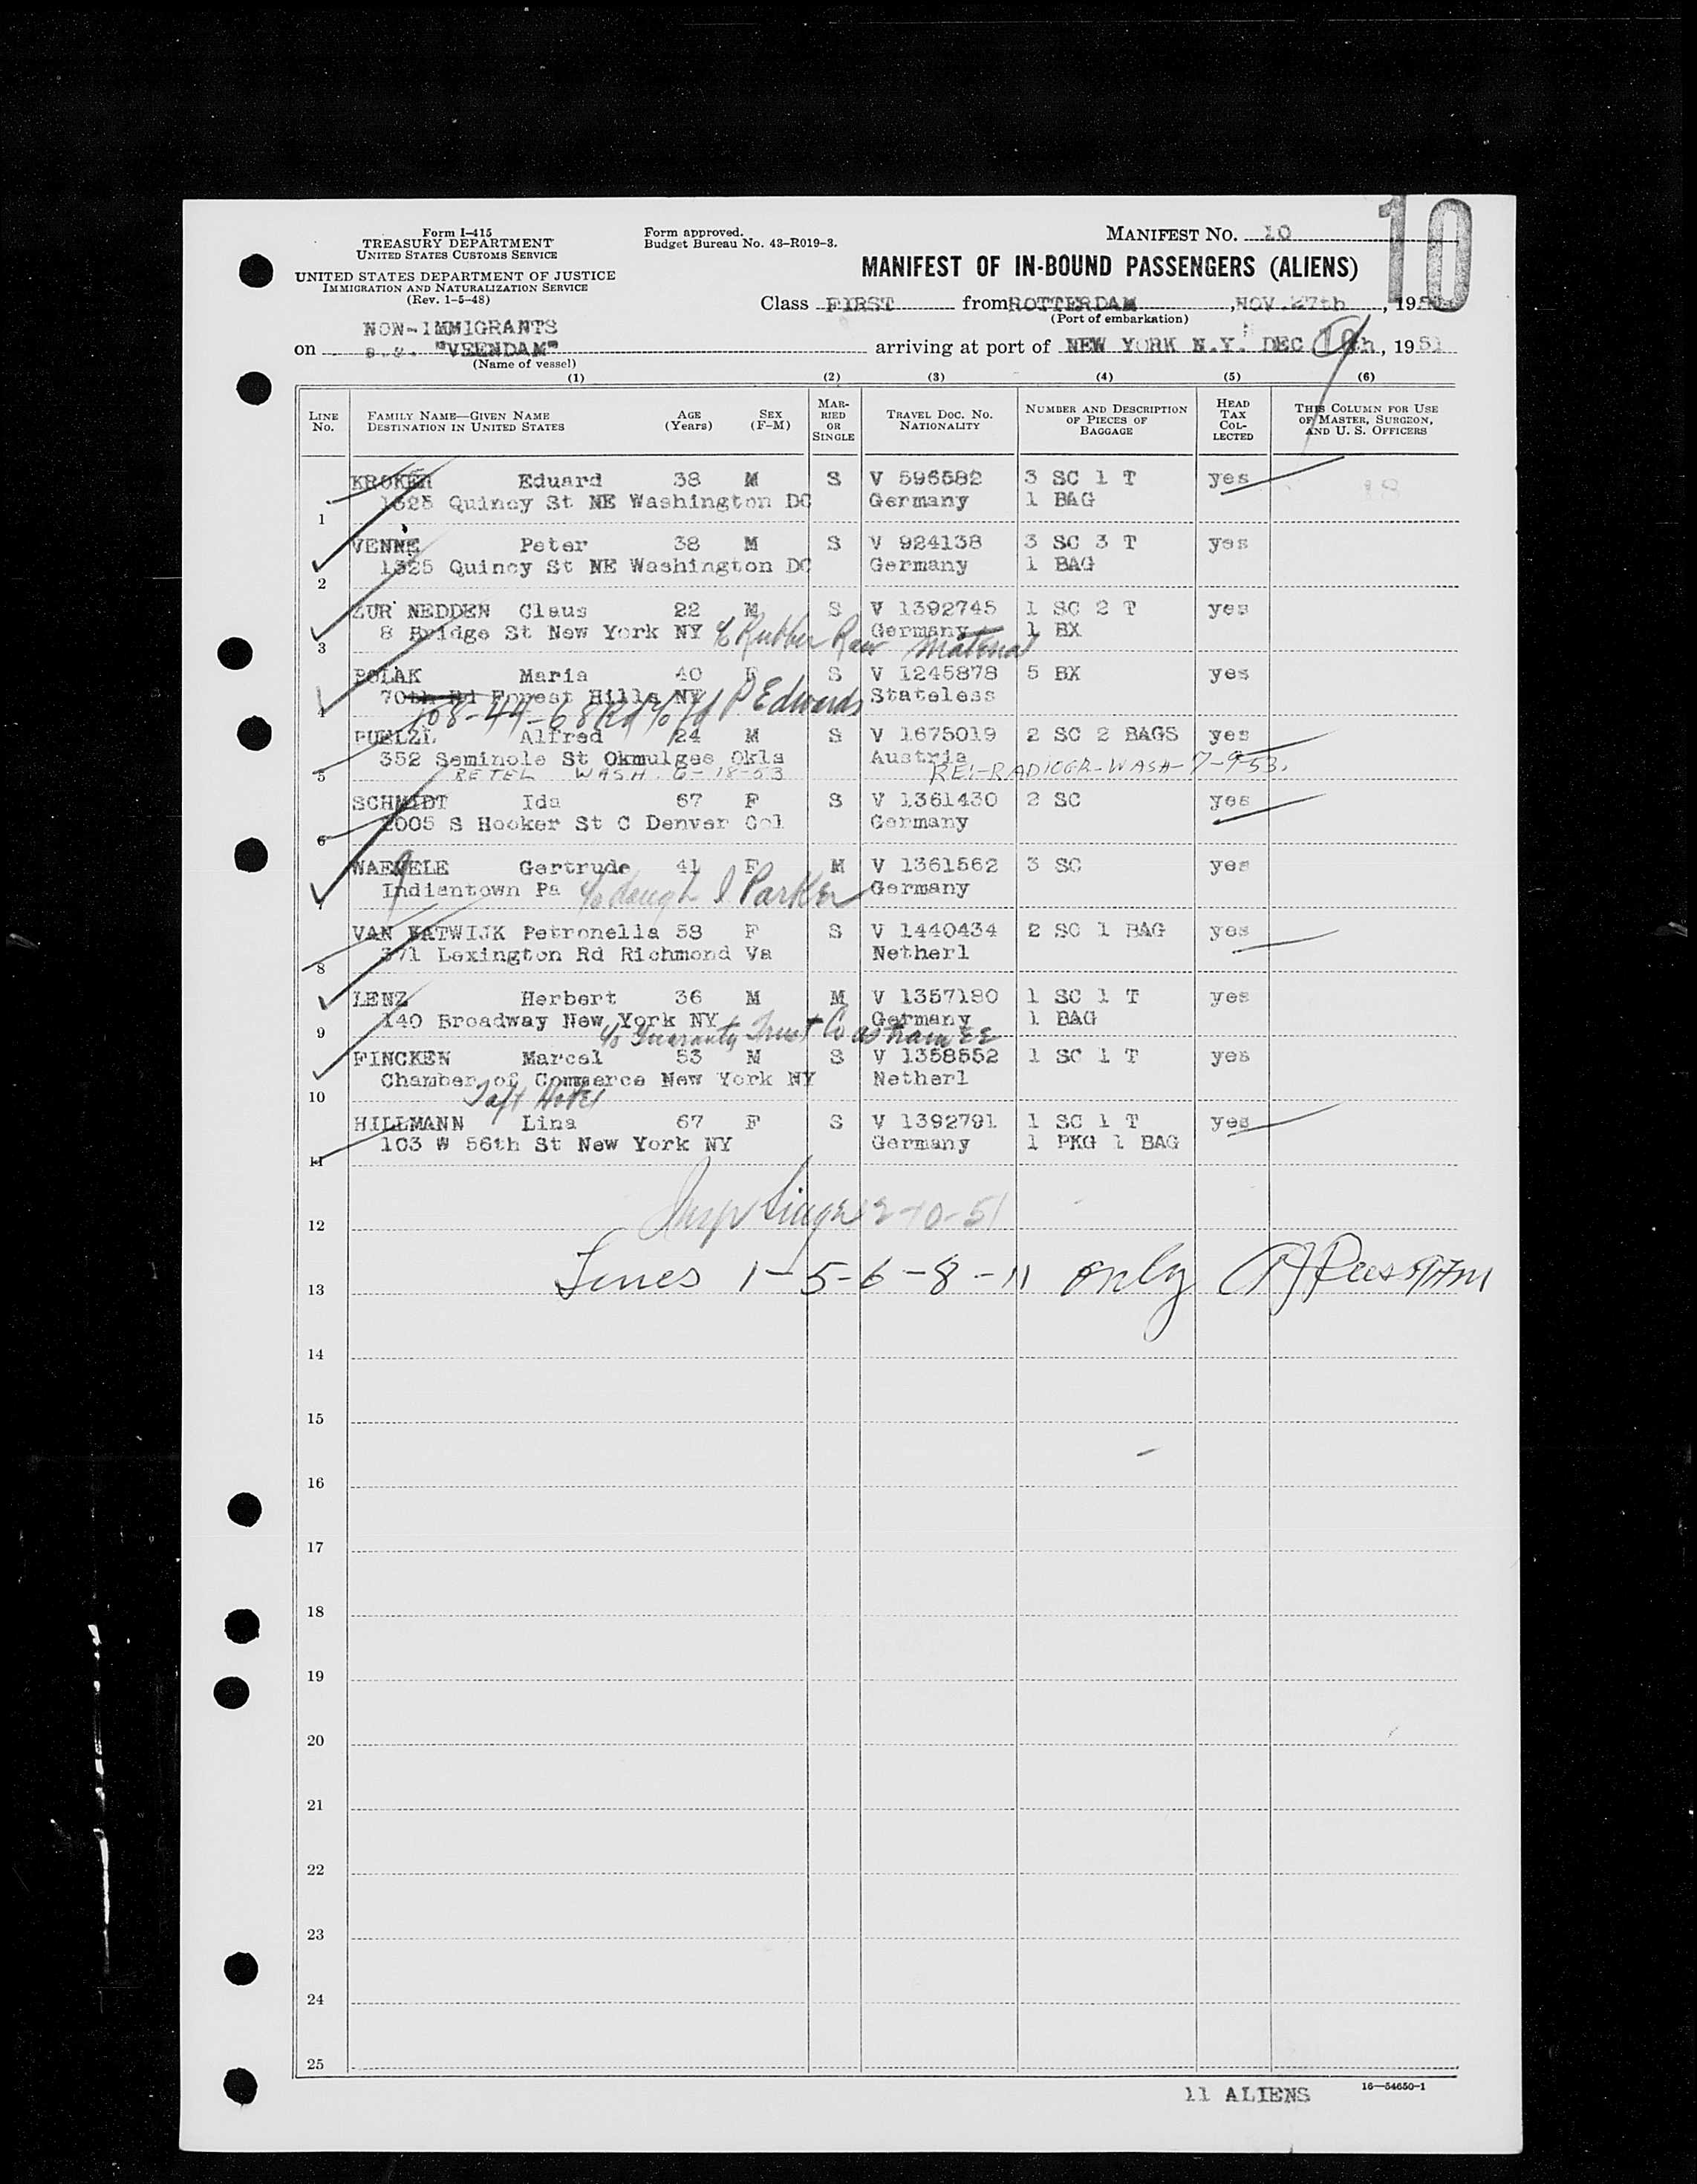 10
Form I-415
TREASURY DEPARTMENT
UNITED STATES CUSTOMS SERVICE
UNITED STATES DEPARTMENT OF JUSTICE
IMMIGRATION AND NATURALIZATION SERVICE
(Rev. 1-5-48)
Form approved.
Budget Bureau No. 43-R019-3.
MANIFEST NO. 10
MANIFEST OF IN-BOUND PASSENGERS (ALIENS)
Class FIRST from ROTTERDAM, NOV. 27th, 19
(Port of embarkation)
NON-IMMIGRANTS
on s.s. "VEENDAM" arriving at port of NEW YORK N.Y. DEC 9, 1951
(Name of vessel)
(1) (2) (3) (4) (5) (6)
LINE NO. FAMILY NAME—GIVEN NAME DESTINATION IN UNITED STATES AGE (Years) SEX (F-M) MARRIED OR SINGLE TRAVEL DOC. NO. NATIONALITY NUMBER AND DESCRIPTION OF PIECES OF BAGGAGE HEAD TAX COLLECTED THIS COLUMN FOR USE OF MASTER, SURGEON, AND U. S. OFFICERS
KROKER Eduard 38 M S V 596582 3 SC 1 T yes
1 1325 Quincy St NE Washington DC Germany 1 BAG
VENNE Peter 38 M S V 924138 3 SC 3 T yes
2 1325 Quincy St NE Washington DC Germany 1 BAG
ZUR NEDDEN Claus 22 M S V 1392745 1 SC 2 T yes
3 8 Bridge St New York NY c/o Rubber Raw Material Germany 1 BX
POLAK Maria 40 F S V 1245878 5 BX yes
4 70th Rd Forest Hills NY P Edwards Stateless
108-44-68 Rd c/o
PUELZL Alfred 24 M S V 1675019 2 SC 2 BAGS yes
352 Seminole St Okmulgee Okla Austria
5 RETEL WASH. 6-18-53 RE:-RADIOGR-WASH-7-9-53.
SCHMIDT Ida 67 F S V 1361430 2 SC yes
6 2005 S Hooker St C Denver Col Germany
WAEFELE Gertrude 41 F M V 1361562 3 SC yes
7 Indiantown Pa c/o daugh I Parker Germany
VAN KATWIJK Petronella 58 F S V 1440434 2 SC 1 BAG yes
8 371 Lexington Rd Richmond Va Netherl
LENZ Herbert 36 M M V 1357190 1 SC 1 T yes
9 140 Broadway New York NY Germany 1 BAG
c/o Guaranty Trust Co as trainee
FINCKEN Marcel 53 M S V 1358552 1 SC 1 T yes
Chamber of Commerce New York NY Netherl
10 Taft Hotel
HILLMANN Lina 67 F S V 1392791 1 SC 1 T yes
11 103 W 56th St New York NY Germany 1 PKG 1 BAG
12 Insp 12-10-51
13 Lines 1-5-6-8-11 only
14
15
16
17
18
19
20
21
22
23
24
25
11 ALIENS
16—54650-1